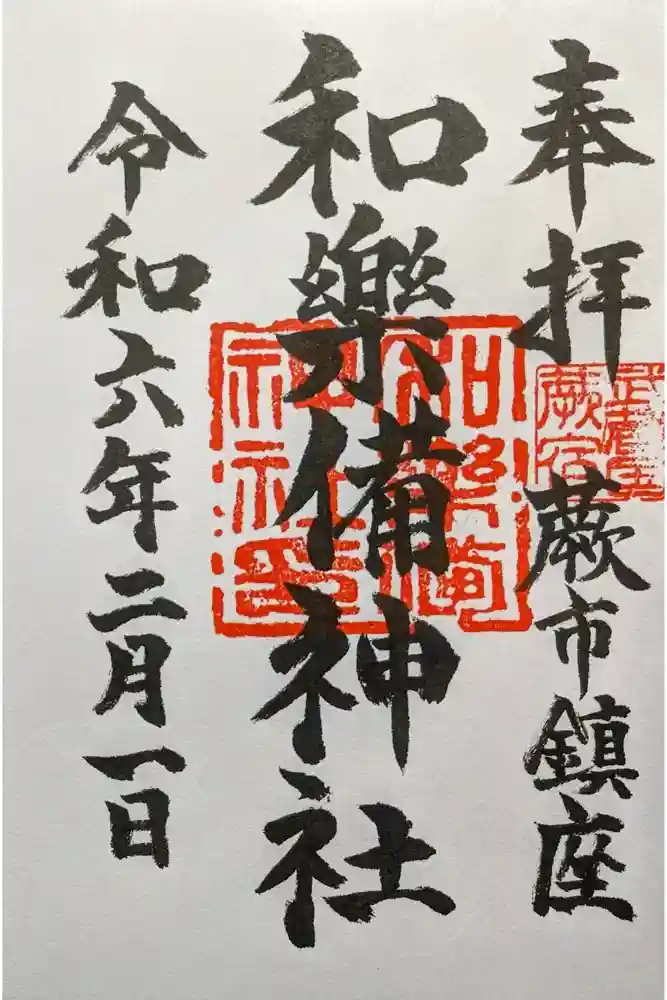 奉拝
蕨市鎮座
武蔵国
蕨宿
和樂備神社
和樂備
神社印
令和六年二月一日